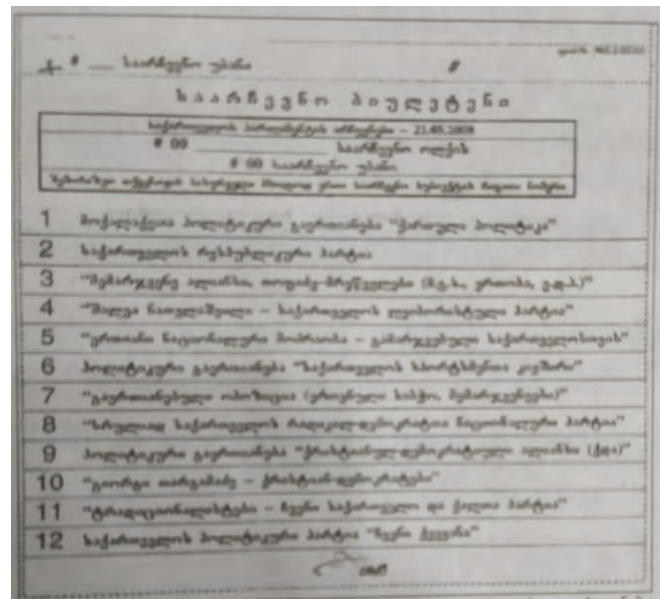 # __ საარჩევნო უბანი #
საარჩევნო ბიულეტენი
საქართველოს პარლამენტის არჩევნები – 21.05.2008
# 00 ____________ საარჩევნო ოლქის
# 00 საარჩევნო უბანი
1 მოქალაქეთა პოლიტიკური გაერთიანება “ქართული პოლიტიკა”
2 საქართველოს რესპუბლიკური პარტია
3 “მემარჯვენე ალიანსი, თოფაძე-მრეწველები (მ.გ.ს., ერთობა, ე.დ.პ.)”
4 “შალვა ნათელაშვილი – საქართველოს ლეიბორისტული პარტია”
5 “ერთიანი ნაციონალური მოძრაობა – გამარჯვებული საქართველოსთვის”
6 პოლიტიკური გაერთიანება “საქართველოს სპორტსმენთა კავშირი”
7 “გაერთიანებული ოპოზიცია (ეროვნული საბჭო, მემარჯვენეები)”
8 “სრულიად საქართველოს რადიკალ-დემოკრატთა ნაციონალური პარტია”
9 პოლიტიკური გაერთიანება “ქრისტიანულ-დემოკრატიული ალიანსი (ქდა)”
10 “გიორგი თარგამაძე – ქრისტიან-დემოკრატები”
11 “ტრადიციონალისტები – ჩვენი საქართველო და ქალთა პარტია”
12 საქართველოს პოლიტიკური პარტია “ჩვენი ქვეყანა”